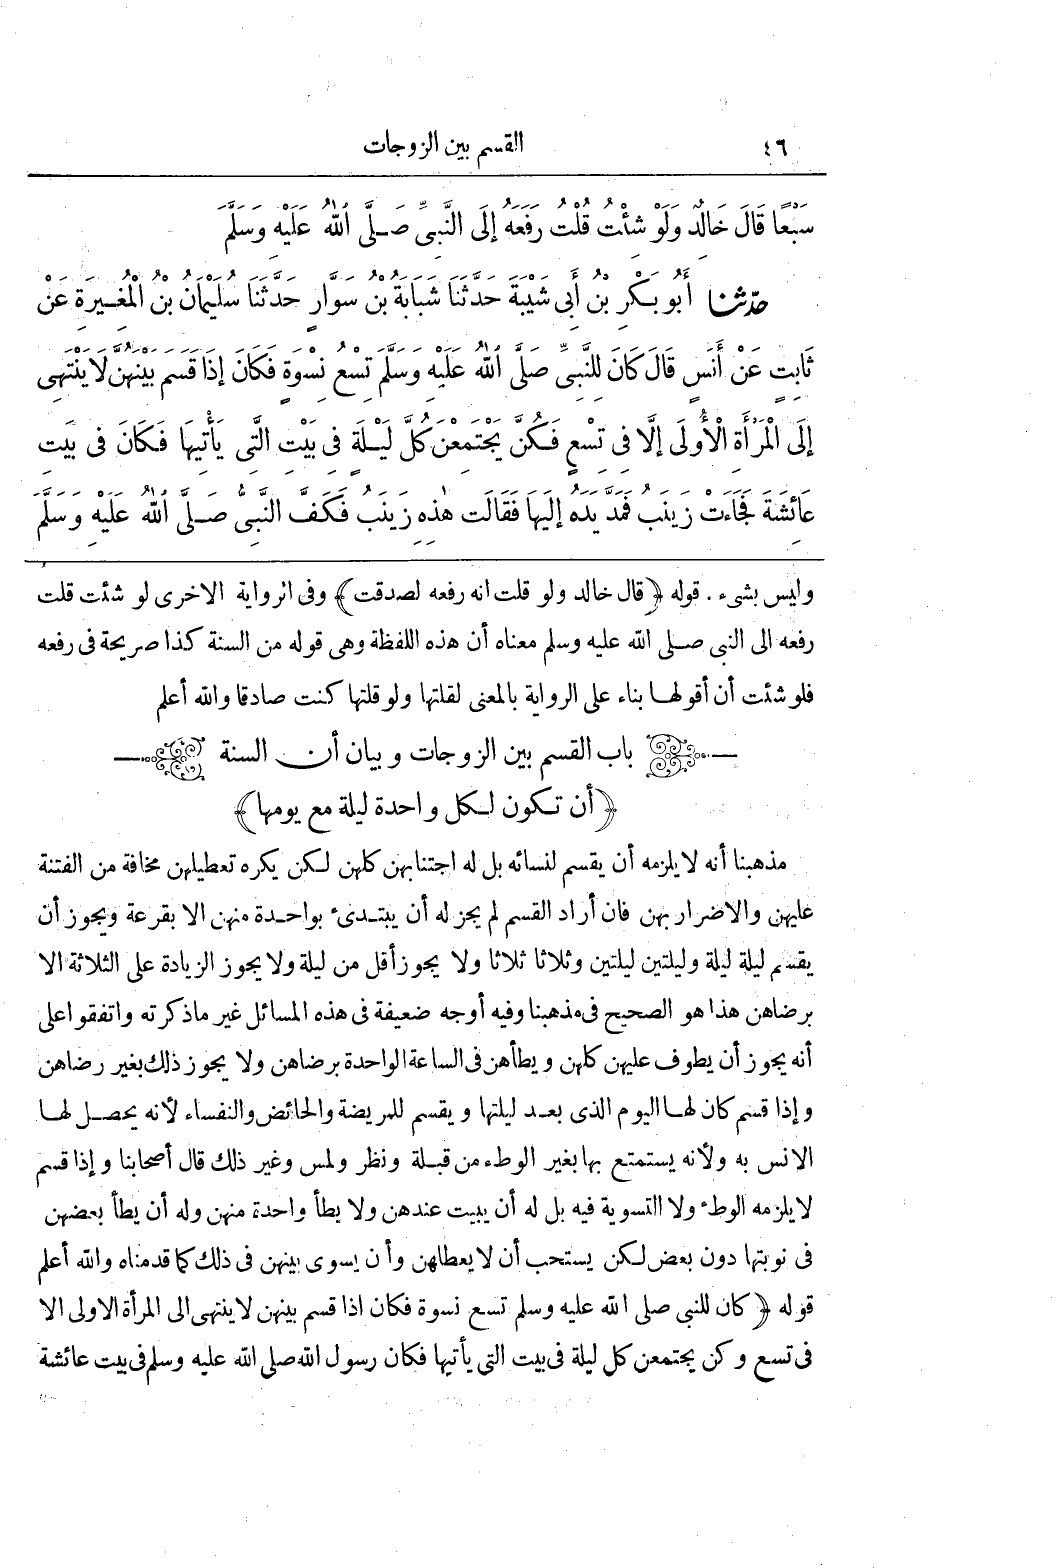 ٤٦ القسم بين الزوجات
سَبْعًا قَالَ خَالِدٌ وَلَوْ شِئْتُ قُلْتُ رَفَعَهُ إِلَى النَّبِىِّ صَلَّى اللهُ عَلَيْهِ وَسَلَّمَ
حدثنا أَبُو بَكْرِ بْنُ أَبِى شَيْبَةَ حَدَّثَنَا شَبَابَةُ بْنُ سَوَّارٍ حَدَّثَنَا سُلَيْمَانُ بْنُ الْمُغِيرَةِ عَنْ
ثَابِتٍ عَنْ أَنَسٍ قَالَ كَانَ لِلنَّبِىِّ صَلَّى اللهُ عَلَيْهِ وَسَلَّمَ تِسْعُ نِسْوَةٍ فَكَانَ إِذَا قَسَمَ بَيْنَهُنَّ لَا يَنْتَهِى
إِلَى الْمَرْأَةِ الْأُولَى إِلَّا فِى تِسْعٍ فَكُنَّ يَجْتَمِعْنَ كُلَّ لَيْلَةٍ فِى بَيْتِ الَّتِى يَأْتِيهَا فَكَانَ فِى بَيْتِ
عَائِشَةَ فَجَاءَتْ زَيْنَبُ فَمَدَّ يَدَهُ إِلَيْهَا فَقَالَتْ هٰذِهِ زَيْنَبُ فَكَفَّ النَّبِىُّ صَلَّى اللهُ عَلَيْهِ وَسَلَّمَ
وليس بشىء . قوله ﴿قال خالد ولو قلت انه رفعه لصدقت﴾ وفى الرواية الاخرى لو شئت قلت
رفعه الى النبى صلى الله عليه وسلم معناه أن هذه اللفظة وهى قوله من السنة كذا صريحة فى رفعه
فلو شئت أن أقولها بناء على الرواية بالمعنى لقلتها ولو قلتها كنت صادقا والله أعلم
باب القسم بين الزوجات وبيان أن السنة
﴿أن تكون لكل واحدة ليلة مع يومها﴾
مذهبنا أنه لا يلزمه أن يقسم لنسائه بل له اجتنابهن كلهن لكن يكره تعطيلهن مخافة من الفتنة
عليهن والاضرار بهن فان أراد القسم لم يجز له أن يبتدئ بواحدة منهن الا بقرعة ويجوز أن
يقسم ليلة ليلة وليلتين ليلتين وثلاثا ثلاثا ولا يجوز أقل من ليلة ولا يجوز الزيادة على الثلاثة الا
برضاهن هذا هو الصحيح فى مذهبنا وفيه أوجه ضعيفة فى هذه المسائل غير ما ذكرته واتفقوا على
أنه يجوز أن يطوف عليهن كلهن ويطأهن فى الساعة الواحدة برضاهن ولا يجوز ذلك بغير رضاهن
وإذا قسم كان لها اليوم الذى بعد ليلتها ويقسم للمريضة والحائض والنفساء لأنه يحصل لها
الانس به ولأنه يستمتع بها بغير الوطء من قبلة ونظر ولمس وغير ذلك قال أصحابنا وإذا قسم
لا يلزمه الوطء ولا التسوية فيه بل له أن يبيت عندهن ولا يطأ واحدة منهن وله أن يطأ بعضهن
فى نوبتها دون بعض لكن يستحب أن لا يعطلهن وأن يسوى بينهن فى ذلك كما قدمناه والله أعلم
قوله ﴿كان للنبى صلى الله عليه وسلم تسع نسوة فكان اذا قسم بينهن لا ينتهى الى المرأة الاولى الا
فى تسع وكن يجتمعن كل ليلة فى بيت التى يأتيها فكان رسول الله صلى الله عليه وسلم فى بيت عائشة